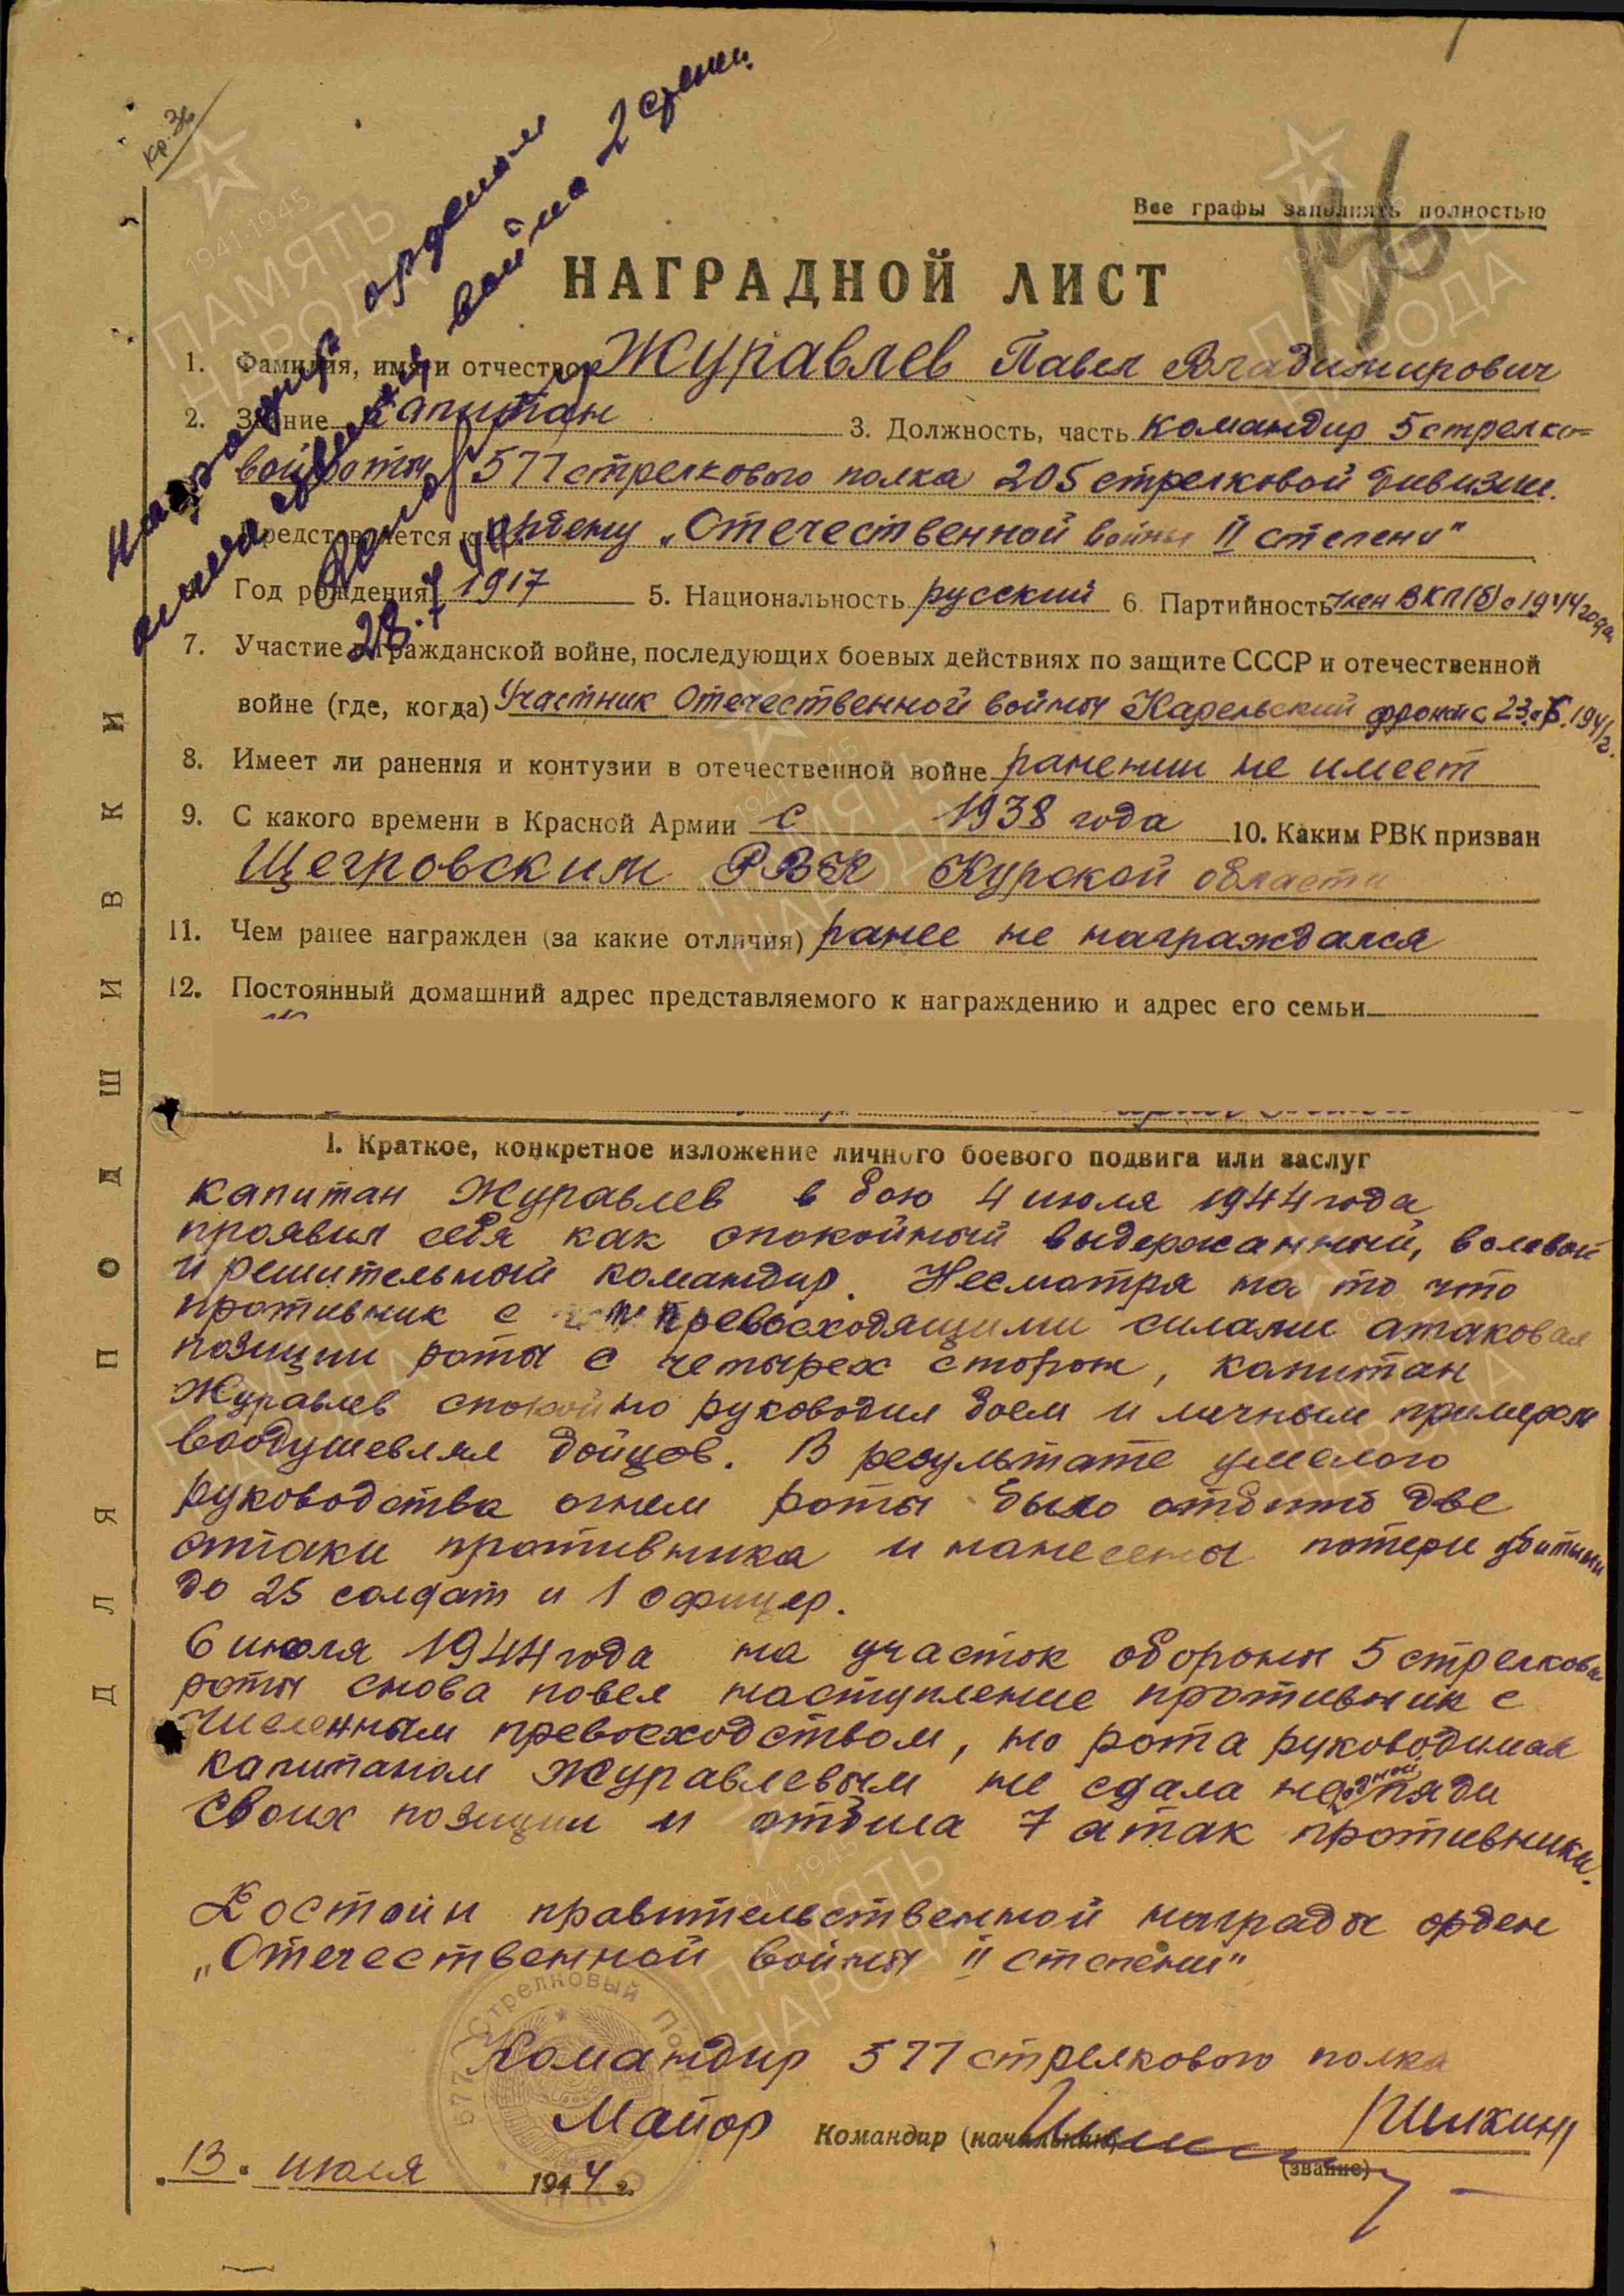 кр. Зв
Награждён орденом
отечественная война 2 степени
28.7.44
Все графы заполнять полностью
НАГРАДНОЙ ЛИСТ
1. Фамилия, имя и отчество Журавлев Павел Владимирович
2. Звание капитан 3. Должность, часть командир 5 стрелко-
вой роты 577 стрелкового полка 205 стрелковой дивизии.
Представляется к ордену „Отечественной войны II степени"
Год рождения 1917 5. Национальность русский 6. Партийность член ВКП(б) с 1944 года
7. Участие в гражданской войне, последующих боевых действиях по защите СССР и отечественной
войне (где, когда) Участник Отечественной войны Карельский фронт с 23.6.1941 г.
8. Имеет ли ранения и контузии в отечественной войне ранении не имеет
9. С какого времени в Красной Армии с 1938 года 10. Каким РВК призван
Щегровским РВК Курской области
11. Чем ранее награжден (за какие отличия) ранее не награждался
12. Постоянный домашний адрес представляемого к награждению и адрес его семьи
I. Краткое, конкретное изложение личного боевого подвига или заслуг
капитан Журавлев в бою 4 июля 1944 года
проявил себя как спокойный выдержанный, волевой
и решительный командир. Несмотря на то что
противник с превосходящими силами атаковал
позиции роты с четырех сторон, капитан
Журавлев спокойно руководил боем и личным примером
воодушевлял бойцов. В результате умелого
руководства огнем роты было отбито две
атаки противника и нанесены потери убитыми
до 25 солдат и 1 офицер.
6 июля 1944 года на участок обороны 5 стрелковой
роты снова повел наступление противник с
численным превосходством, но рота руководимая
капитаном Журавлевым не сдала не одной пяди
своих позиции и отбила 7 атак противника.
Достоин правительственной награды орден
„Отечественной войны II степени"
Командир 577 стрелкового полка
Майор Командир (начальник) /Шилкин/
(звание)
13. июля 1944 г.
577 Стрелковый Полк
ДЛЯ ПОДШИВКИ
1941-1945
ПАМЯТЬ
НАРОДА